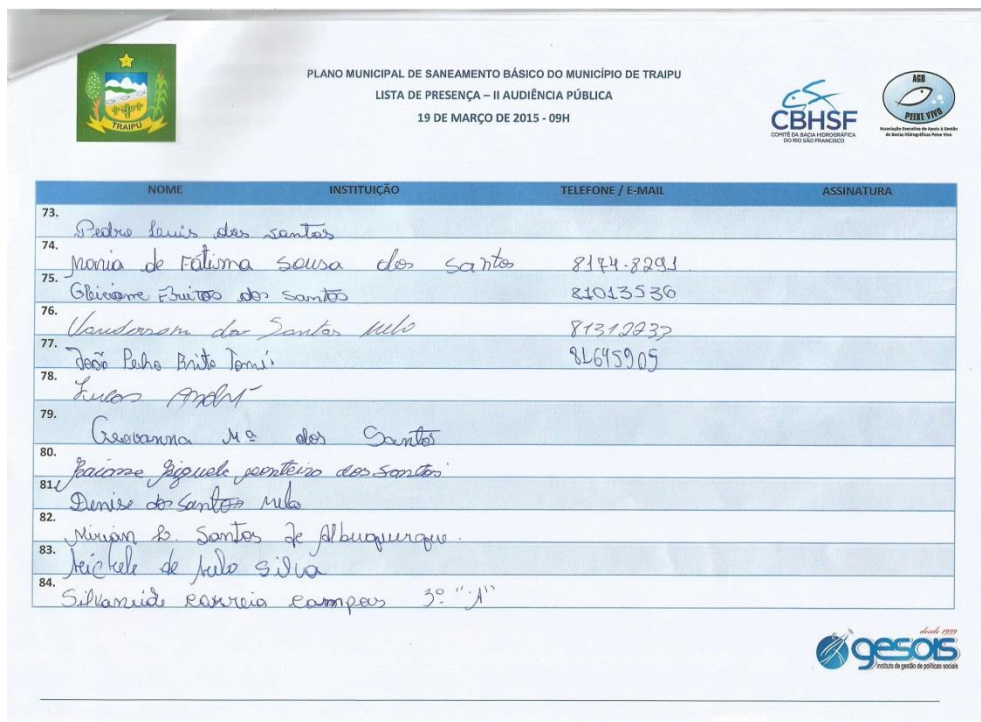 PLANO MUNICIPAL DE SANEAMENTO BÁSICO DO MUNICÍPIO DE TRAIPU
LISTA DE PRESENÇA – II AUDIÊNCIA PÚBLICA
19 DE MARÇO DE 2015 - 09H
TRAIPU
CBHSF
COMITÊ DA BACIA HIDROGRÁFICA
DO RIO SÃO FRANCISCO
AGB
PEIXE VIVO
Associação Executiva de Apoio à Gestão
de Bacias Hidrográficas Peixe Vivo
NOME INSTITUIÇÃO TELEFONE / E-MAIL ASSINATURA
73. Pedro Luis dos santos
74. Maria de Fátima Sousa dos Santos 8174-8291
75. dos Santos 81013536
76. dos Santos Melo
77. João Brito 81645905
78. Lucas André
79. Geovanna Mª dos Santos
80. dos Santos
81. Denise dos Santos Melo
82. Mirian Santos de Albuquerque.
83. de Melo Silva
84. Silvaneide Correia Campos 3º "A"
desde 1999
gesois
instituto de gestão de políticas sociais